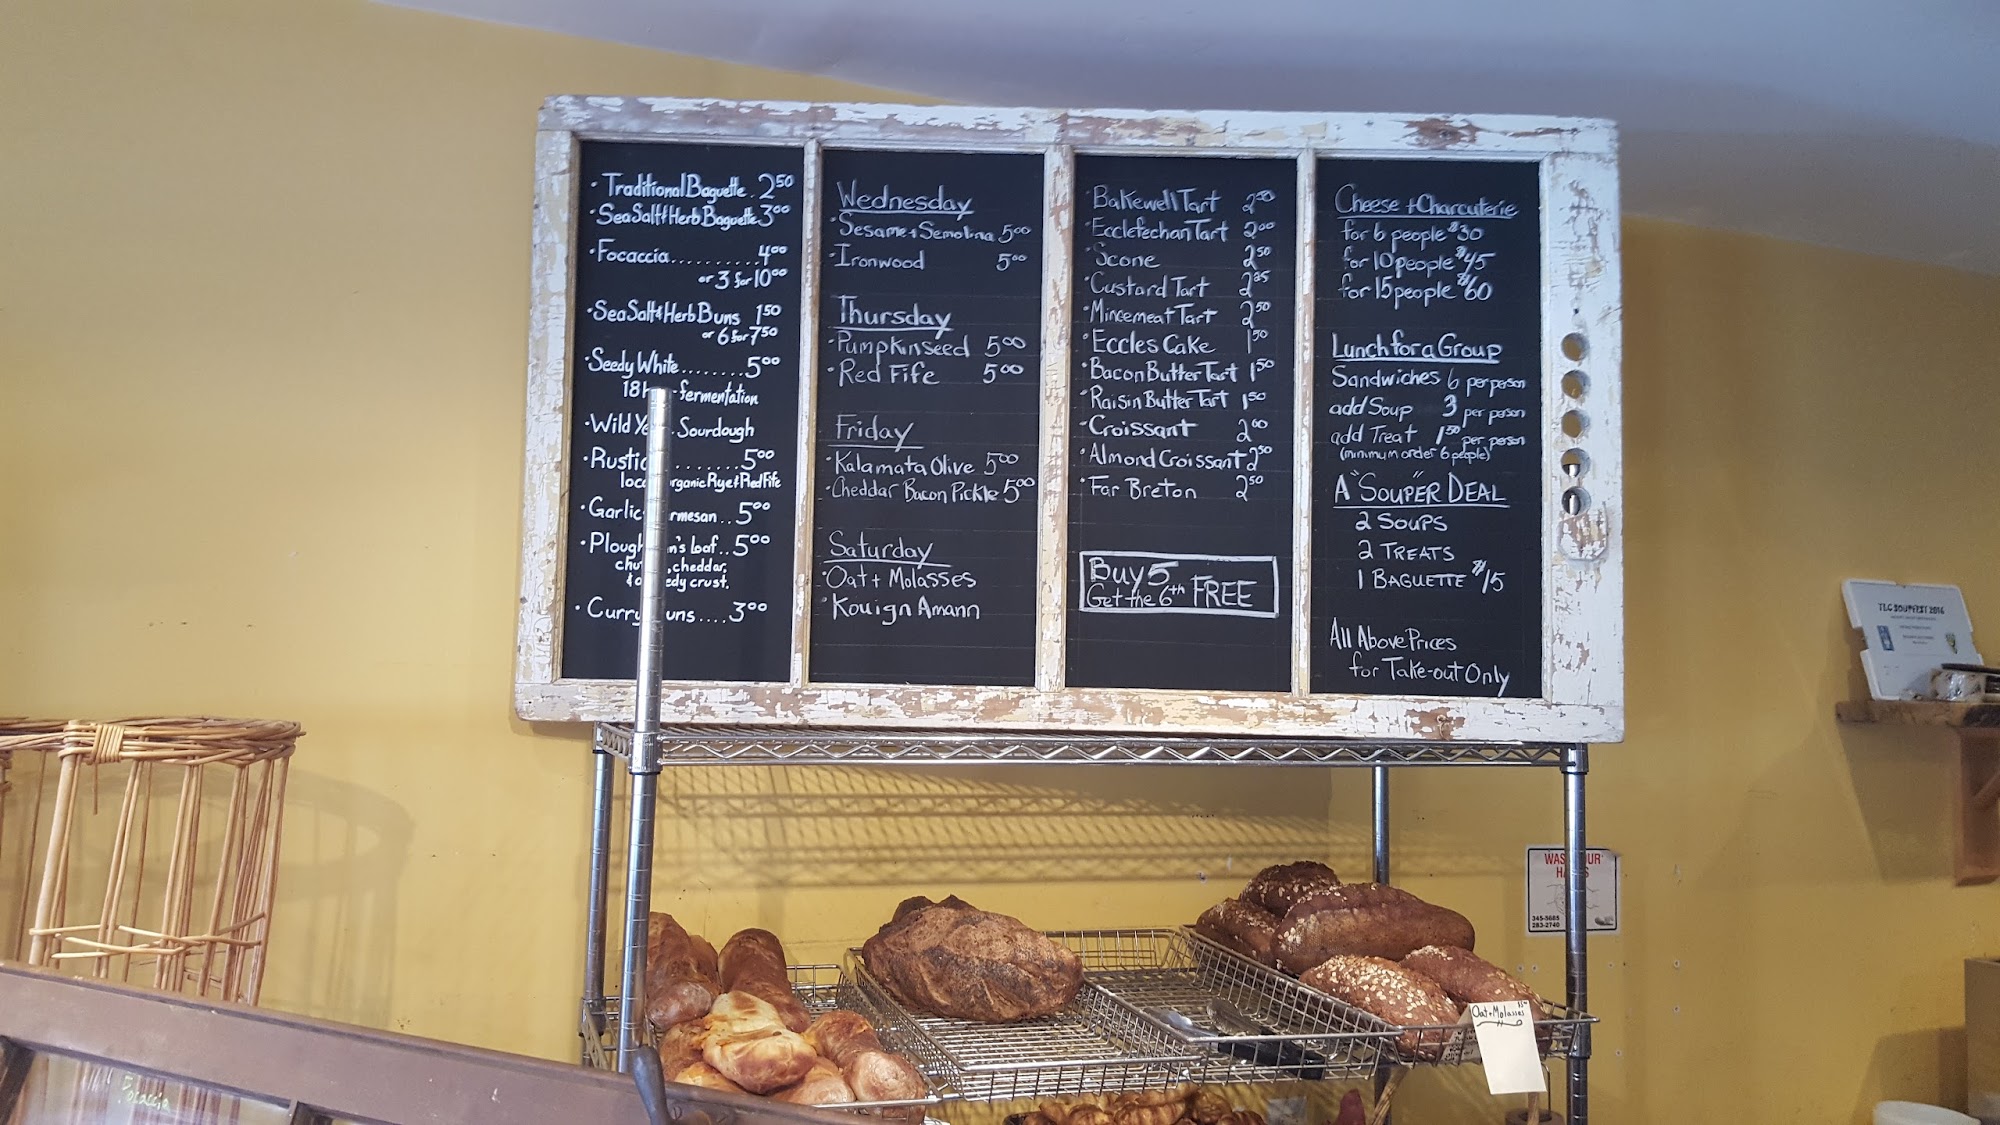 · Traditional Baguette . 2 50
· Sea Salt & Herb Baguette. 3 00
· Focaccia.......... 4 00
or 3 for 10 00
· Sea Salt & Herb Buns 1 50
or 6 for 7 50
· Seedy White........ 5 00
18 fermentation
· Wild Sourdough
· Rustic ........ 5 00
organic Rye & Red Fife
· Garlic .. 5 00
Loaf.. 5 00
cheddar,
crust.
· Curry .... 3 00
Wednesday
· Sesame + Semolina 5 00
· Ironwood 5 00
Thursday
· Pumpkinseed 5 00
· Red Fife 5 00
Friday
· Kalamata Olive 5 00
· Cheddar Bacon Pickle 5 00
Saturday
· Oat + Molasses
· Kouign Amann
· Bakewell Tart 2 50
· Ecclefechan Tart 2 00
· Scone 2 50
· Custard Tart
· Mincemeat Tart 2 50
· Eccles Cake 1 50
· Bacon Butter Tart 1 50
· Raisin Butter Tart 1 50
· Croissant 2 00
· Almond Croissant 2 50
· Far Breton 2 50
Buy 5
Get the 6th FREE
Cheese + Charcuterie
for 6 people $30
for 10 people $45
for 15 people $60
Lunch for a Group
Sandwiches 6 per person
add Soup 3 per person
add Treat 1 50 per person
(minimum order 6 people)
A "SOUP"ER DEAL
2 SOUPS
2 TREATS
1 BAGUETTE $15
All Above Prices
for Take-out Only
TLC SOUPFEST 2016
345-5685
283-2740
Oat + Molasses
Focaccia